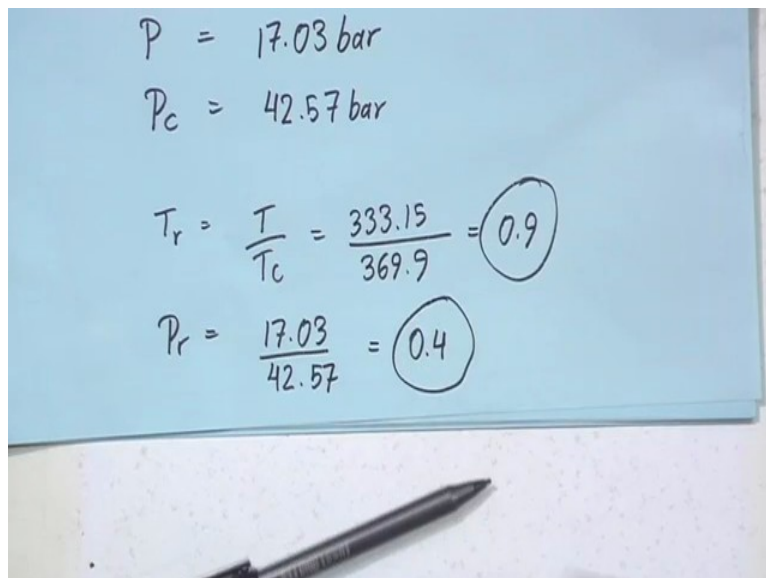 P = 17.03 bar
Pc = 42.57 bar
Tr = T/Tc = 333.15/369.9 = 0.9
Pr = 17.03/42.57 = 0.4